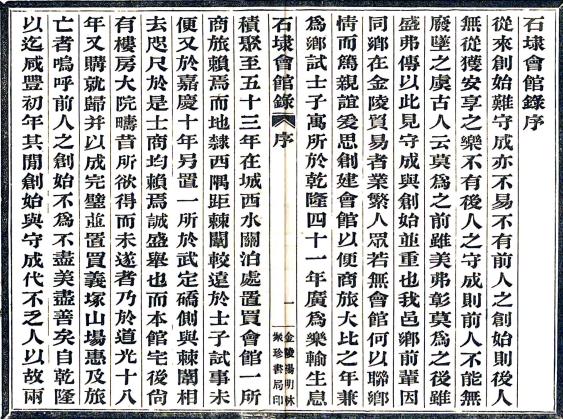 石埭會館錄序
從來創始難守成亦不易不有前人之創始則後人
無從獲安享之樂不有後人之守成則前人不能無
廢墜之虞古人云莫為之前雖美弗彰莫為之後雖
盛弗傳以此見守成與創始並重也我邑鄉前輩因
同鄉在金陵貿易者業繁人眾若無會館何以聯鄉
情而篤親誼爰思創建會館以便商旅大比之年兼
為鄉試士子寓所於乾隆四十一年廣為樂輸生息
石埭會館錄 序 一 金陵湯明林聚珍書局印
積聚至五十三年在城西水關泊處置買會館一所
商旅賴焉而地隸西隅距棘闈較遠於士子試事未
便又於嘉慶十年另置一所於武定礄側與棘闈相
去咫尺於是士商均賴焉誠盛舉也而本館宅後尚
有樓房大院疇昔所欲得而未遂者乃於道光十八
年又購就歸并以成完璧並置買義塚山場惠及旅
亡者嗚呼前人之創始不為不盡美盡善矣自乾隆
以迄咸豐初年其閒創始與守成代不乏人以故兩